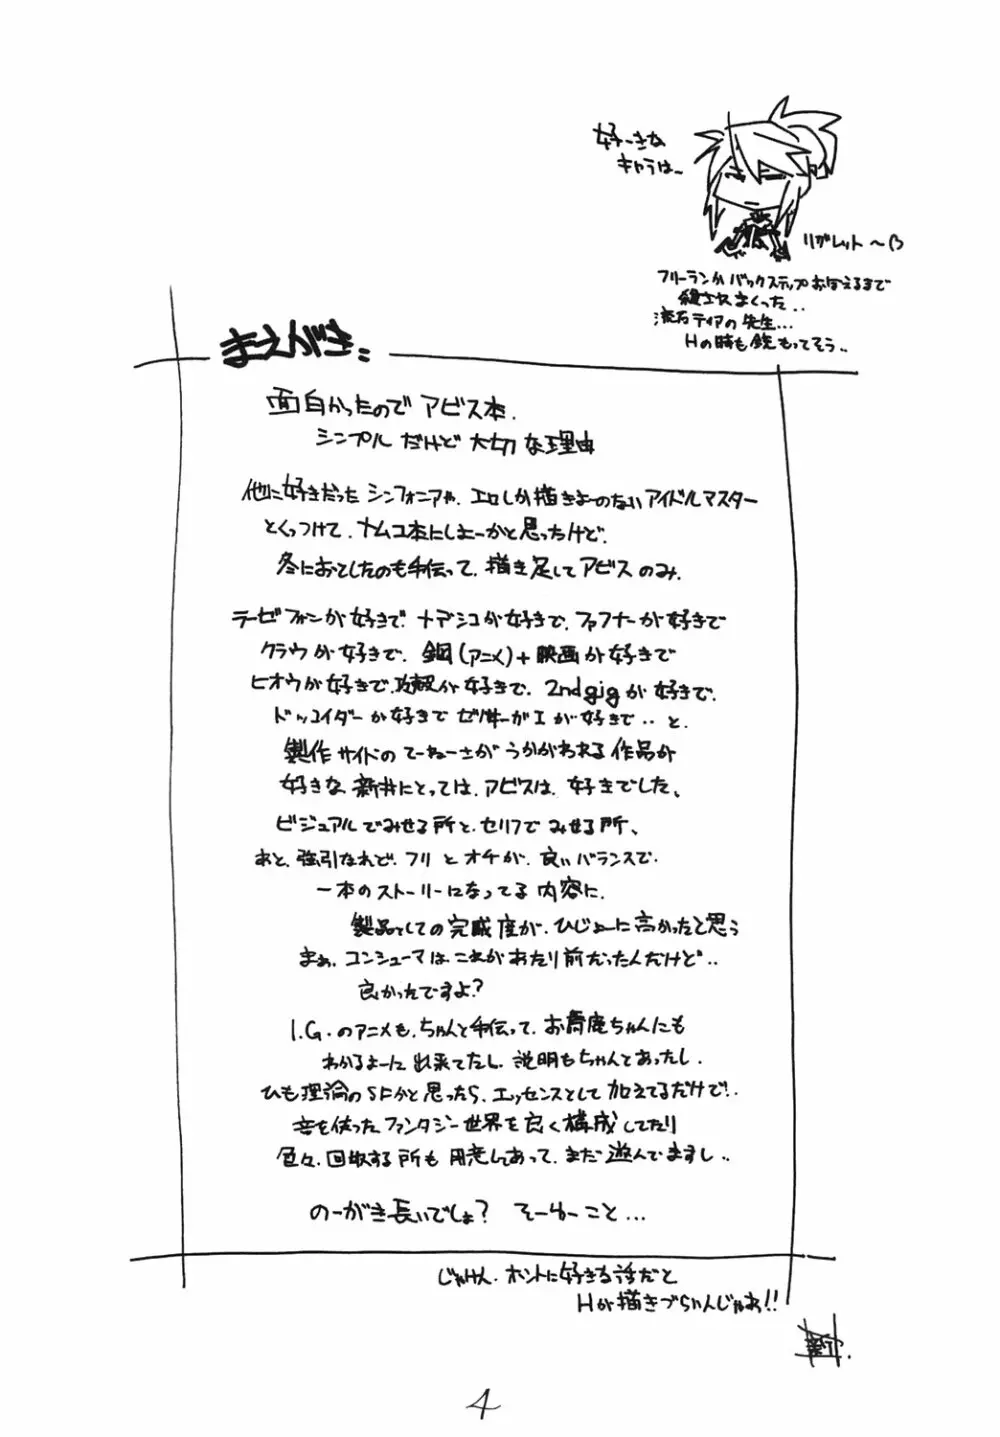 好ーきな
キャラは～
リグレット～
フリーランかバックステップおぼえるまで
殺されまくった..
流石ティアの先生...
Hの時も銃もってそう..
まえがき:
面白かったので アビス本.
シンプル だけど 大切 な理由
他に好きだった シンフォニアや、エロしか描きよーのない アイドルマスター
とくっつけて、ナムコ本にしよーかと思ったけど.
冬におとしたのも手伝って、描き足して アビス のみ.
ラーゼフォンが好きで、ナデシコが好きで、ファフナーが好きで
クラウが好きで、鋼(アニメ)+映画が好きで
ヒオウが好きで、攻殻が好きで、2ndgigが好きで、
ドッコイダーが好きで ゼノサーガⅠが好きで‥と、
製作サイドの てーねーさが うかがわれる 作品が
好きな 新井にとっては、アビスは、好きでした、
ビジュアルでみせる所と、セリフでみせる所、
あと、強引なれど、フリとオチが、良いバランスで、
一本のストーリーになってる 内容に、
製品としての完成度が、ひじょーに高かったと思う
まぁ、コンシューマは、これがあたり前だったんだけど‥
良かったですよ?
I.G.のアニメも、ちゃんと手伝って、お馬鹿ちゃんにも
わかるよーに 出来てたし、説明もちゃんとあったし、
ひも理論のSFかと思ったら、エッセンスとして 加えてるだけで‥
音を使った ファンタジー世界を良く構成してたり
色々、回収する所も 用意してあって、まだ遊んでますし‥
のーがき長いでしょ? そーゆーこと...
じゃけん、ホントに好きな話だと
Hが描きづらいんじゃぁ!!
4